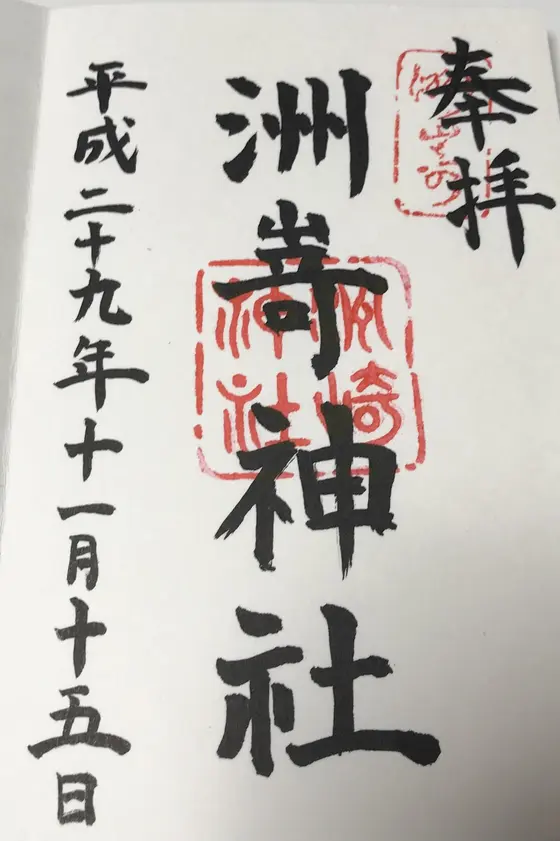 奉拝
洲嵜神社
洲崎神社
平成二十九年十一月十五日